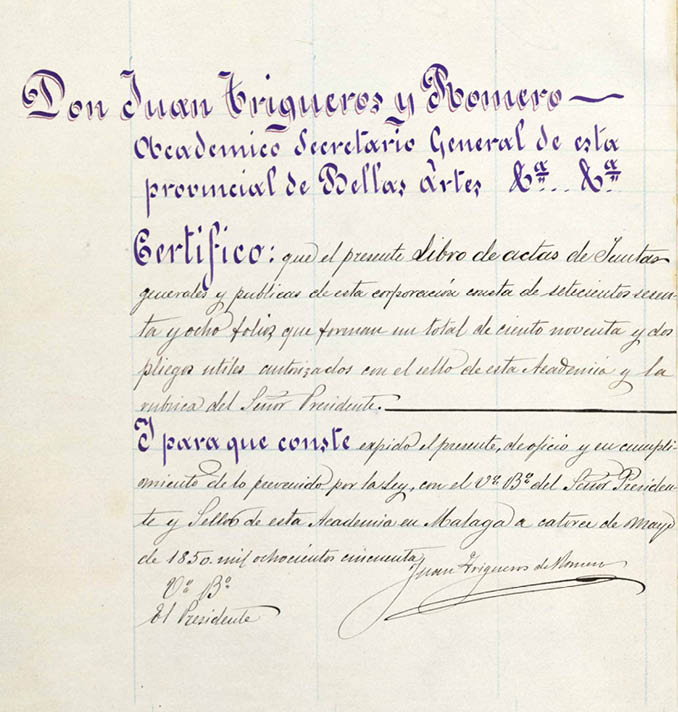 Don Juan Trigueros y Romero
Academico Secretario General de esta
provincial de Bellas Artes &ª... &ª
Certifico: que el presente Libro de actas de Juntas
generales y publicas de esta corporación consta de setecientos sesen-
ta y ocho folios que forman un total de ciento noventa y dos
pliegos utiles autorizados con el sello de esta Academia y la
rubrica del Señor Presidente.
I para que conste expido el presente, de oficio y en cumpli-
miento de lo prevenido por la Ley, con el Vº Bº del Señor Presiden-
te y Sello de esta Academia en Malaga a catorce de Mayo
de 1850. mil ochocientos cincuenta
Juan Trigueros de Romero
Vº Bº
El Presidente